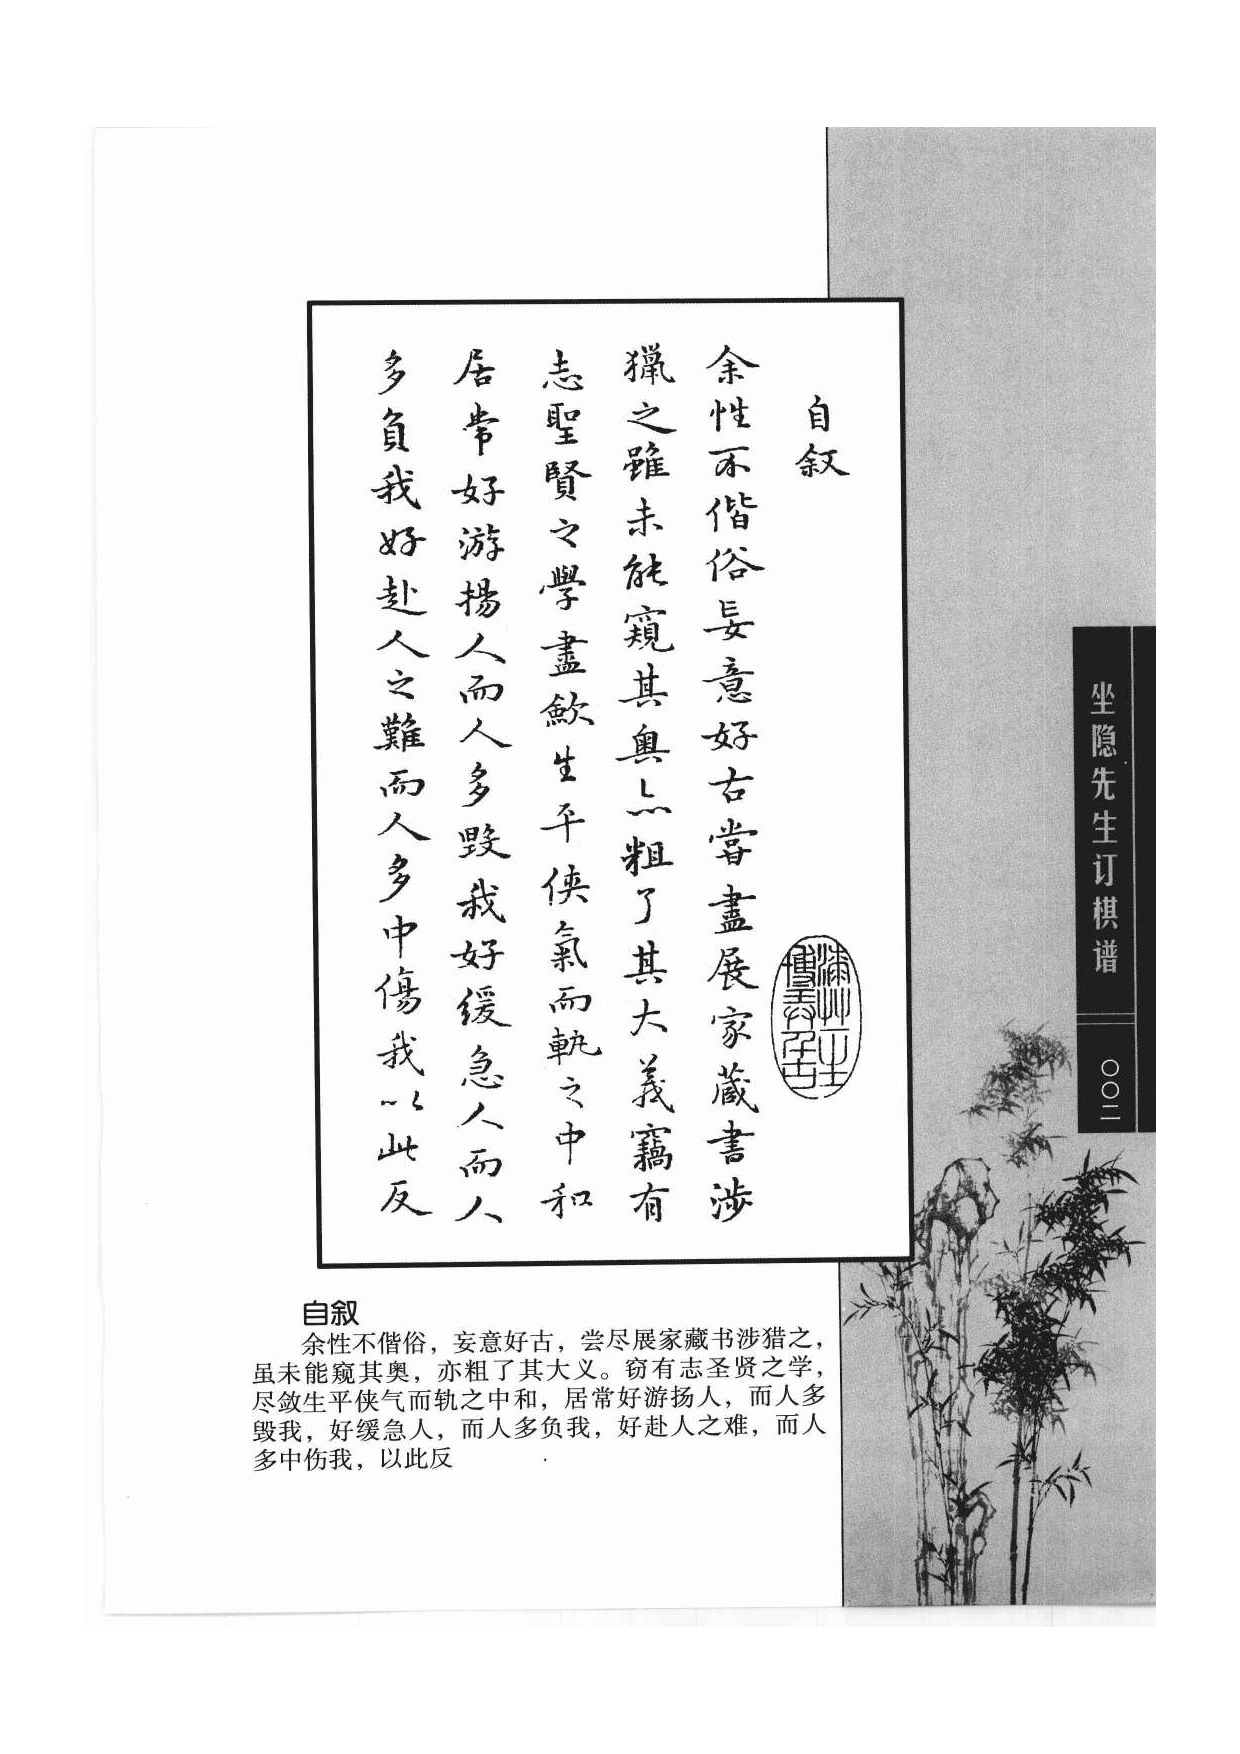 自叙
余性不偕俗妄意好古嘗盡展家藏書涉
獵之雖未能窺其奧亦粗了其大義竊有
志聖賢之學盡歛生平俠氣而軌之中和
居常好游揚人而人多毀我好緩急人而人
多負我好赴人之難而人多中傷我以此反
坐隐先生订棋谱
〇〇二
自叙
余性不偕俗，妄意好古，尝尽展家藏书涉猎之，
虽未能窥其奥，亦粗了其大义。窃有志圣贤之学，
尽敛生平侠气而轨之中和，居常好游扬人，而人多
毁我，好缓急人，而人多负我，好赴人之难，而人
多中伤我，以此反